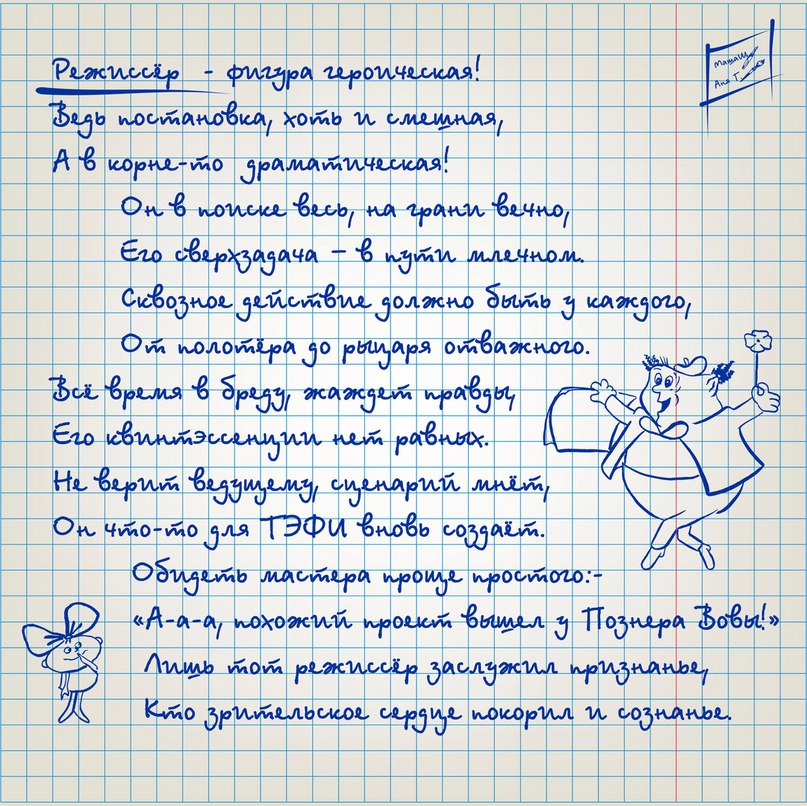 Маша Ш.
Аня Т.
Режиссёр - фигура героическая!
Ведь постановка, хоть и смешная,
А в корне-то драматическая!
Он в поиске весь, на грани вечно,
Его сверхзадача – в пути млечном.
Сквозное действие должно быть у каждого,
От полотёра до рыцаря отважного.
Всё время в бреду, жаждет правды,
Его квинтэссенции нет равных.
Не верит ведущему, сценарий мнёт,
Он что-то для ТЭФИ вновь создаёт.
Обидеть мастера проще простого:-
«А-а-а, похожий проект вышел у Познера Вовы!»
Лишь тот режиссёр заслужил признанье,
Кто зрительское сердце покорил и сознанье.